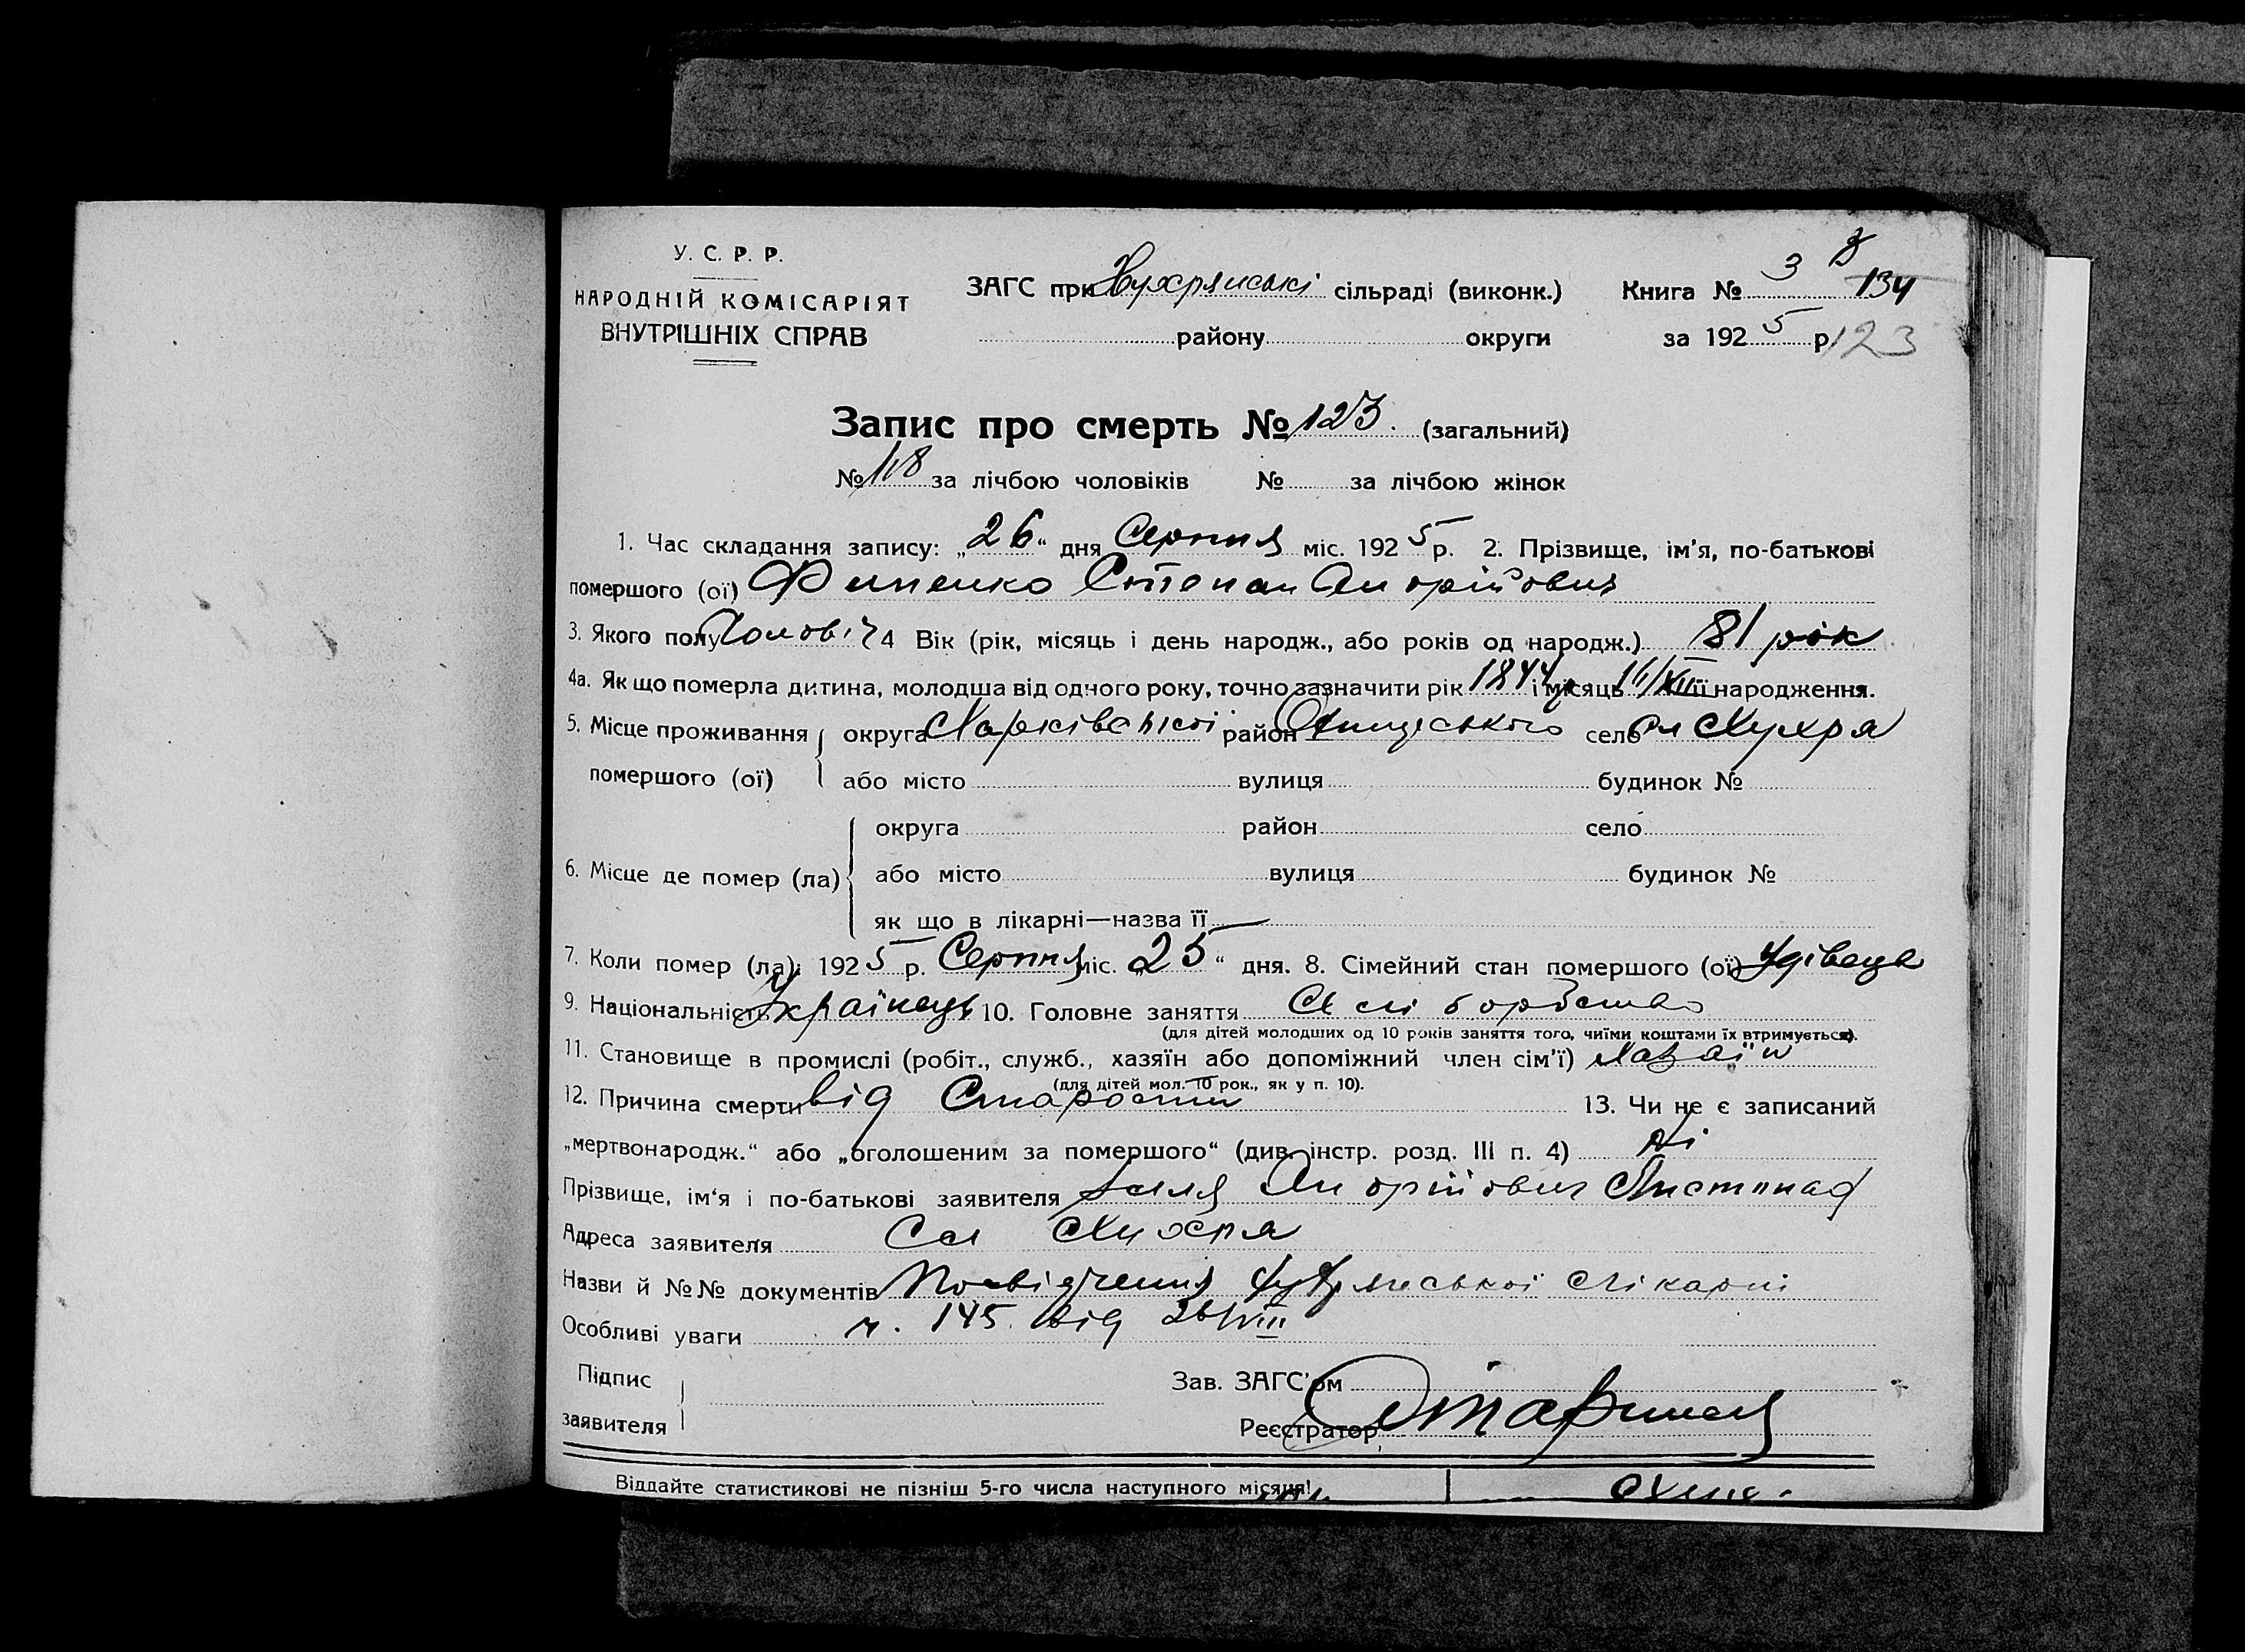 У. С. Р. Р.
НАРОДНІЙ КОМІСАРІЯТ
ВНУТРІШНІХ СПРАВ
ЗАГС при сільраді (виконк.)
району округи
Книга № 3
134
за 1925 р. 123
Запис про смерть № 123. (загальний)
№ 118 за лічбою чоловіків № за лічбою жінок
1. Час складання запису: „26“ дня Серпня міс. 1925 р. 2. Прізвище, ім’я, по-батькові
помершого (ої) Степан
3. Якого полу Чоловіч 4 Вік (рік, місяць і день народж., або років од народж.) 81 рік
4а. Як що померла дитина, молодша від одного року, точно зазначити рік 1844 і місяць її народження.
5. Місце проживання округа Харківської район село Хухра
помершого (ої) або місто вулиця будинок №
округа район село
6. Місце де помер (ла) або місто вулиця будинок №
як що в лікарні—назва її —
7. Коли помер (ла): 1925 р. Серпня міс. „25“ дня. 8. Сімейний стан помершого (ої) Удівець
9. Національність Українець 10. Головне заняття
(для дітей молодших од 10 років заняття того, чиїми коштами їх втримується).
11. Становище в промислі (робіт., служб., хазяїн або допоміжний член сім’ї) Хазаїн
(для дітей мол. 10 рок., як у п. 10).
12. Причина смерти від Старости 13. Чи не є записаний
„мертвонародж.“ або „оголошеним за помершого“ (див. інстр. розд. III п. 4) Ні
Прізвище, ім‘я і по-батькові заявителя Листопад
Адреса заявителя Сл Хухря
Назви й №№ документів Посвідчення Хухрянської Лікарні
Особливі уваги н. 145 від 26/VIII
Підпис
заявителя
Зав. ЗАГС’ом
Реєстратор
Віддайте статистикові не пізніш 5-го числа наступного місяця!